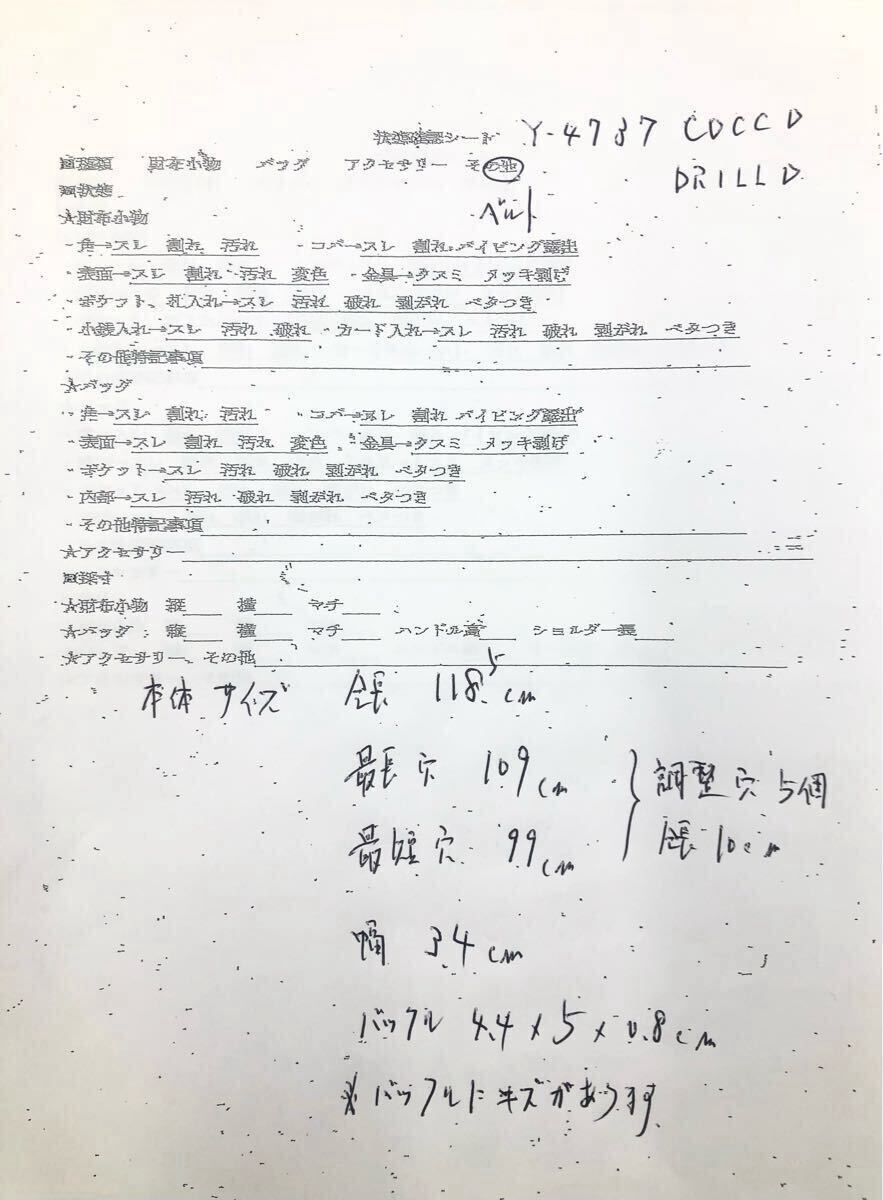 状態確認シート Y-4737 COCCO
DRILLO
■種類 財布小物 バッグ アクセサリー その他
■状態 ベルト
★財布小物
・角→スレ 割れ 汚れ ・コバ→スレ 割れ パイピング露出
・表面→スレ 割れ 汚れ 変色 ・金具→クスミ メッキ剥げ
・ポケット、札入れ→スレ 汚れ 破れ 剥がれ ベタつき
・小銭入れ→スレ 汚れ 破れ ・カード入れ→スレ 汚れ 破れ 剥がれ ベタつき
・その他特記事項
★バッグ
・角→スレ 割れ 汚れ ・コバ→スレ 割れ パイピング露出
・表面→スレ 割れ 汚れ 変色 ・金具→クスミ メッキ剥げ
・ポケット→スレ 汚れ 破れ 剥がれ ベタつき
・内部→スレ 汚れ 破れ 剥がれ ベタつき
・その他特記事項
★アクセサリー
■採寸
★財布小物 縦 横 マチ
★バッグ 縦 横 マチ ハンドル高 ショルダー長
★アクセサリー、その他
本体サイズ 全長 118.5cm
最長穴 109cm
調整穴 5個
最短穴 99cm
全長 10cm
幅 3.4cm
バックル 4.4×5×0.8cm
※バックルにキズがあります